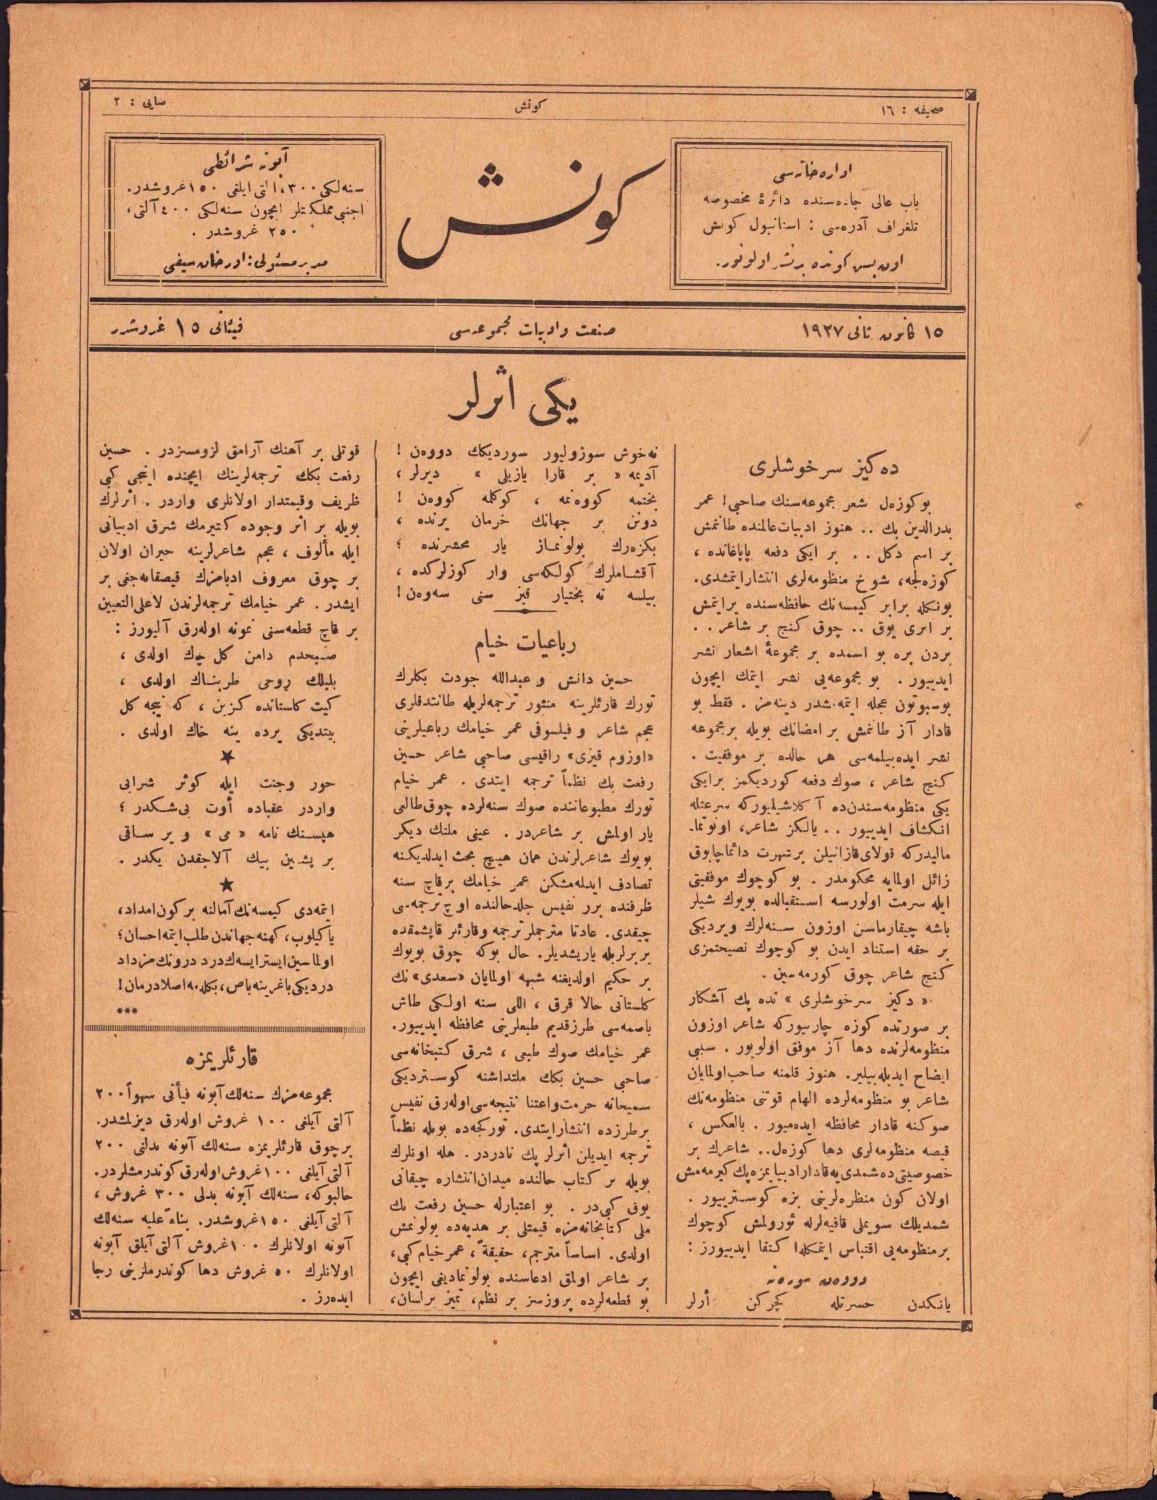 صحيفه : ١٦
كونش
صايى : ٢
اداره خانه‌سى
باب عالى جاده‌سنده دائرۀ مخصوصه
تلغراف آدره‌سى : استانبول كونش
اون بش كونده بر نشر اولونور.
كونش
آبونه شرائطى
سنه‌لكى ٣٠٠، آلتى آيلغى ١٥٠ غروشدر.
اجنبى مملكتلر ايچون سنه‌لكى ٤٠٠ آلتى،
٢٥٠ غروشدر .
مدير مسئولى : اورخان سيفى
١٥ كانون ثانى ١٩٢٧
صنعت و ادبيات مجموعه‌سى
فيئاتى ١٥ غروشدر
يكى اثرلر
ده‌كيز سرخوشلرى
بو كوزه‌ل شعر مجموعه‌سنك صاحبى ! عمر
بدرالدين بك .. هنوز ادبيات عالمنده طانتمش
بر اسم دكل . . بر ايكى دفعه پاپاغانده ،
كوزه‌لجه ، شوخ منظومه‌لرى انتشار ايتمشدى.
بونكله برابر كيمسه‌نك حافظه‌سنده ير ايتمش
بر اثرى يوق .. چوق كنج بر شاعر . .
بردن بره بو اسمده بر مجموعۀ اشعار نشر
ايدييور . بو مجموعه‌يى نشر ايتمك ايچون
بوسبوتون عجله ايتمه‌مشدر دينه‌مز . فقط بو
قادار آز طانتمش بر امضانك بويله بر مجموعه
نشر ايده‌بيلمه‌سى هر حالده بر موفقيت .
كنج شاعر ، صوك دفعه كورديكمز بر ايكى
يكى منظومه‌سندن‌ده آكلاشيليوركه سرعتله
انكشاف ايدييور . . يالكز شاعر، اونوتما-
ماليدركه قولاى قازانيلن بر شهرت دائما چابوق
زائل اولمايه محكومدر . بو كوچوك موفقيتى
ايله سرمت اولورسه استقبالده بويوك شيلر
باشه چيقارماسن اوزون سنه‌لرك ويرديكى
بر حقه استناد ايدن بو كوچوك نصيحتمزى
كنج شاعر چوق كورمه‌سين .
« دكيز سرخوشلرى » نده پك آشكار
بر صورتده كوزه چارپيوركه شاعر اوزون
منظومه‌لرنده دها آز موفق اولويور . سببى
ايضاح ايديله‌بيلير. هنوز قلمنه صاحب اولمايان
شاعر بو منظومه‌لرده الهام قوتنى منظومه‌نك
صوكنه قادار محافظه ايده‌ميور . بالعكس ،
قيصه منظومه‌لرى دها كوزه‌ل.. شاعرك بر
خصوصيتى ده شمدى‌يه قادار ادبياتمزه پك كيرمه‌مش
اولان كون منظره‌لرينى بزه كوسترييور .
شمديلك سويملى قافيه‌لرله ئورولمش كوچوك
بر منظومه‌يى اقتباس ايتمكله اكتفا ايدييورز :
دووه‌ن سوره‌نه
يانكدن حسرتله كچركن أرلر
نه‌خوش سوزوليور سورديكك دووه‌ن !
آديمه « بر قارا يازيلى » ديرلر ،
بختمه كووه‌نمه ، كوكلمه كووه‌ن !
دونن بر جهانك خرمان يرنده ،
بكزه‌رك بولونماز يار محشرنده ؛
آقشاملرك كولكه‌سى وار كوزلركده ،
بيلسه نه بختيار قيز سنى سه‌وه‌ن !
رباعيات خيام
حسين دانش و عبدالله جودت بكلرك
تورك قارئلرينه منثور ترجمه‌لريله طانتدقلرى
عجم شاعر و فيلسوفى عمر خيامك رباعيلرينى
«اوزوم قيزى» راقيسى صاحبى شاعر حسين
رفعت بك نظماً ترجمه ايتدى . عمر خيام
تورك مطبوعاتنده صوك سنه‌لرده چوق طالعى
يار اولمش بر شاعردر . عينى ملتك ديكر
بويوك شاعرلرندن همان هيچ بحث ايدلديكنه
تصادف ايدله‌مشكن عمر خيامك بر قاچ سنه
ظرفنده برر نفيس جلد حالنده اوچ ترجمه‌سى
چيقدى . عادتا مترجملر ترجمه و قارئلر قاپيشمقده
بربرلريله ياريشديلر. حال بوكه چوق بويوك
بر حكيم اولديغنه شبهه اولمايان «سعدى» نك
كلستانى حالا قرق ، اللى سنه اولكى طاش
باصمه‌سى طرز قديم طبعلرينى محافظه ايدييور.
عمر خيامك صوك طبعى ، شرق كتبخانه‌سى
صاحبى حسين بكك ملتداشنه كوسترديكى
سميحانه حرمت و اعتنا نتيجه‌سى اوله‌رق نفيس
بر طرزده انتشار ايتدى. توركجه‌ده بويله نظماً
ترجمه ايديلن أثرلر پك نادردر . هله اونلرك
بويله بر كتاب حالنده ميدان انتشاره چيقانى
يوق كبى‌در . بو اعتبارله حسين رفعت بك
ملى كتابخانه‌مزه قيمتلى بر هديه‌ده بولونمش
اولدى. اساساً مترجم، حقيقةً، عمر خيام كبى،
بر شاعر اولمق ادعاسنده بولونماديغى ايچون
بو قطعه‌لرده پروزسز بر نظم، تميز بر لسان،
قوتلى بر آهنك آرامق لزومسزدر . حسين
رفعت بكك ترجمه‌لرينك ايچنده اينجى كبى
ظريف و قيمتدار اولانلرى واردر . اثرلرك
بويله بر اثر وجوده كتيرمك شرق ادبياتى
ايله مألوف ، عجم شاعرلرينه حيران اولان
بر چوق معروف ادبامزك قيصقانه‌جغى بر
ايشدر . عمر خيامك ترجمه‌لرندن لاعلى‌التعيين
بر قاچ قطعه‌سنى نمونه اوله‌رق آليورز :
صبحدم دامن كل چاك اولدى ،
بلبلك روحى طربناك اولدى ،
كيت كلستانده كزين ، كه نيجه كل
بيتديكى يرده ينه خاك اولدى .
★
حور و جنت ايله كوثر شرابى
واردر عقباده أوت بى‌شكدر ؛
هپسنك نامه « مى » و ير ساقى
بر پشين بيك آلاجقدن يكدر .
★
ايتمه‌دى كيمسه‌نك آمالنه بر كون امداد،
يا كيلوب، كهنه جهاندن طلب ايتمه احسان؛
اولماسين ايسترايسه‌ك درد درونك مزداد
درديكى باغرينه باص، بكله‌مه اصلا درمان!
***
قارئلريمزه
مجموعه‌مزك سنه‌لك آبونه فيأتى سهواً ٢٠٠
آلتى آيلغى ١٠٠ غروش اوله‌رق ديزلمشدر.
بر چوق قارئلريمزه سنه‌لك آبونه بدلى ٢٠٠
آلتى آيلغى ١٠٠ غروش اوله‌رق كوندرمشلردر.
حالبوكه، سنه‌لك آبونه بدلى ٣٠٠ غروش ،
آلتى آيلغى ١٥٠ غروشدر. بناءً عليه سنه‌لك
آبونه اولانلرك ١٠٠ غروش آلتى آيلق آبونه
اولانلرك ٥٠ غروش دها كوندرملرينى رجا
ايده‌رز .